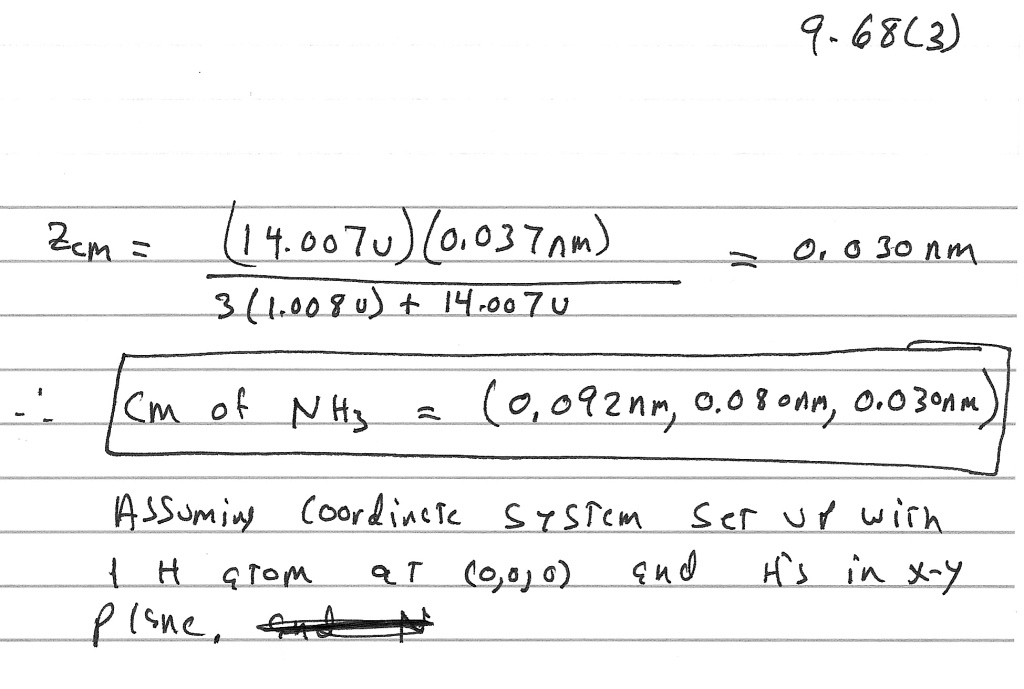 9.68(3)
Zcm = (14.007u)(0.037nm) / 3(1.008u) + 14.007u = 0.030nm
∴ Cm of NH3 = (0.092nm, 0.080nm, 0.030nm)
Assuming coordinate system set up with
1 H atom at (0,0,0) and H's in x-y
plane.